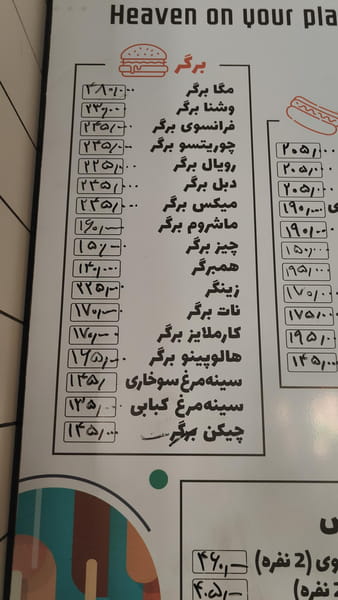 Heaven on your pla
برگر
مگا برگر ۴۸۰/۰۰۰
وشنا برگر ۲۳۰/۰۰۰
فرانسوی برگر ۲۴۵/۰۰۰
چوریتسو برگر ۲۳۵/۰۰۰
رویال برگر ۲۲۵/۰۰۰
دبل برگر ۲۳۵/۰۰۰
میکس برگر ۲۴۵/۰۰۰
ماشروم برگر ۱۶۰/۰۰۰
چیز برگر ۱۵۰/۰۰۰
همبرگر ۱۴۰/۰۰۰
زینگر ۲۲۵/۰۰۰
نات برگر ۱۷۰/۰۰۰
کارملایز برگر ۱۷۰/۰۰۰
هالوپینو برگر ۱۶۵/۰۰۰
سینه‌مرغ سوخاری ۱۴۵/
سینه‌مرغ کبابی ۱۳۵/۰۰۰
چیکن برگر ۱۴۵/۰۰۰
۲۰۵/۰۰۰
۲۰۵/۰۰۰
۲۰۵/۰۰۰
۱۹۰/۰۰۰
۱۹۰/۰۰۰
۱۵۰/۰۰۰
۱۹۵/۰۰۰
۱۷۰/۰۰۰
۱۷۵/۰۰۰
۱۹۵/۰۰۰
۱۴۵/۰۰۰
س
وی (2 نفره) ۴۶۰/۰۰۰
2 نفره) ۴۰۵/۰۰۰